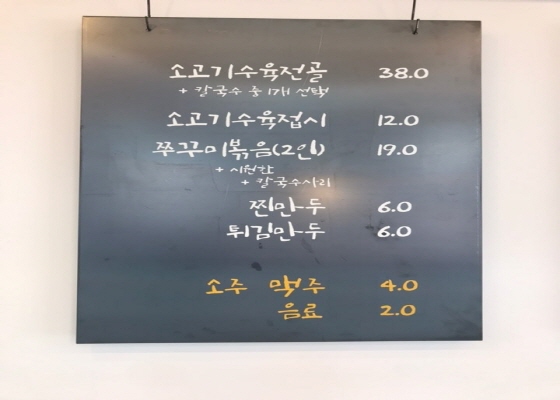 소고기수육전골 38.0
+ 칼국수 중 1개 선택
소고기수육접시 12.0
쭈꾸미볶음(2인) 19.0
+ 시원한
+ 칼국수사리
찐만두 6.0
튀김만두 6.0
소주 맥주 4.0
음료 2.0